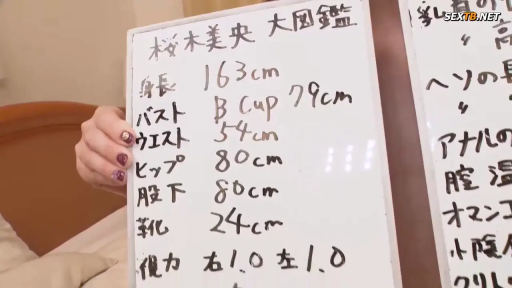 SEXTB.NET
桜木美央 大図鑑
身長 163cm
バスト B Cup 79cm
ウエスト 54cm
ヒップ 80cm
股下 80cm
靴 24cm
視力 右1.0 左1.0
ヘソの
アナルの
膣温
オマンコ
小陰
クリト